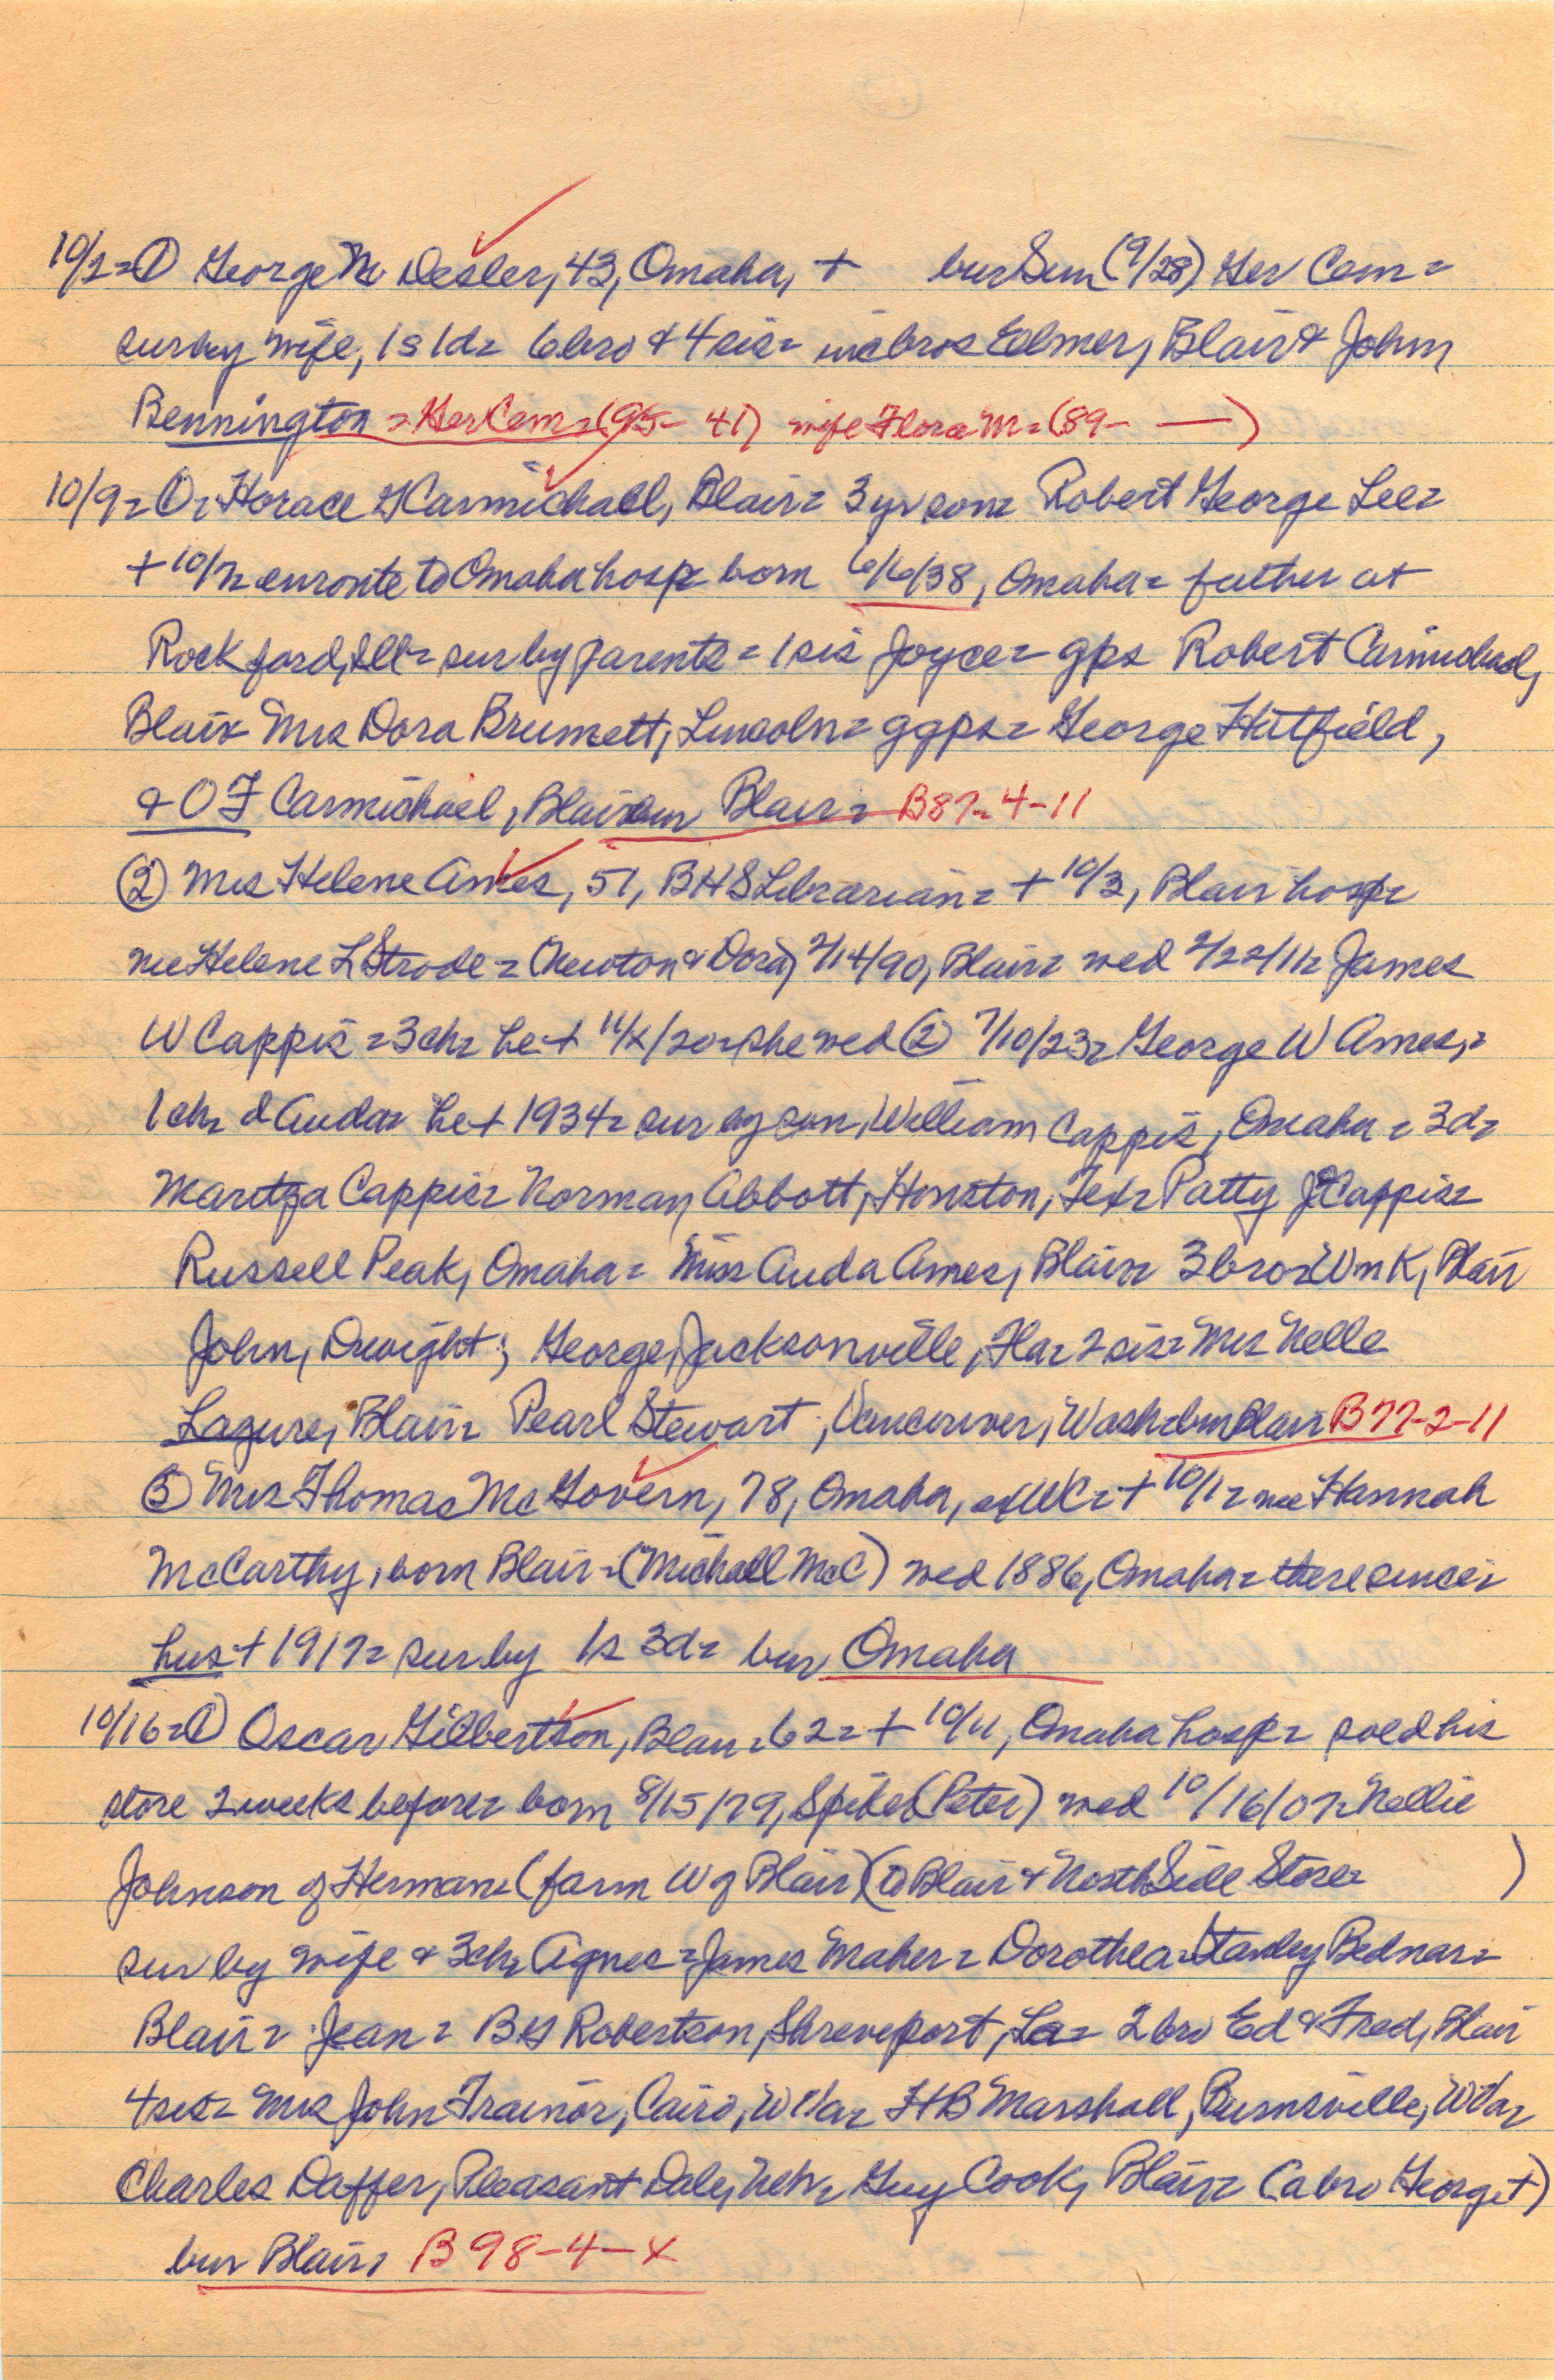 10/2=① George M Desler, 43, Omaha, + bur Sun (9/28) Her Cem=
sur by wife, 1s 1d= 6 bro & 4 sis= inc bros Elmer, Blair & John
Bennington = Her Cem= (95- 41) wife Flora M= (89- —)
10/9= ①= Horace H Carmichael, Blair= 3 yr son= Robert George Lee=
+ 10/7= enroute to Omaha hosp= born 6/6/38, Omaha= father at
Rockford, Ill= sur by parents = 1 sis Joyce= gps Robert Carmichael,
Blair= Mrs Dora Brumett, Lincoln= ggps= George Hatfield,
& O F Carmichael, Blair= bur Blair= B87-4-11
② Mrs Helene Ames, 51, BHS Librarian= + 10/3, Blair hosp=
nee Helene L Strode = (Newton & Dora) 2/14/90, Blair= wed 2/22/11= James
W Cappis = 3 ch= he + 11/x/20= she wed ② 7/10/23= George W Ames,=
1 ch= d Auda= he + 1934= sur by son, William Cappis, Omaha = 3d=
Maritza Cappis= Norman Abbott, Houston, Tex= Patty J Cappis=
Russell Peak, Omaha= Miss Auda Ames, Blair= 3 bro= Wm K, Blair
John, Dwight; George, Jacksonville, Fla= 2 sis= Mrs Nelle
Lazure, Blair= Pearl Stewart, Vancouver, Wash= bur Blair B77-2-11
③ Mrs Thomas McGovern, 78, Omaha, exWC= + 10/1= nee Hannah
McCarthy, born Blair= (Michael McC) wed 1886, Omaha= there since=
hus + 1917= sur by 1s 3d= bur Omaha
10/16=① Oscar Gilbertson, Blair= 62= + 10/11, Omaha hosp= sold his
store 2 weeks before= born 8/15/79, Spiker (Peter) wed 10/16/07= Nellie
Johnson of Herman= (farm W of Blair) (to Blair & North Side Store= )
sur by wife & 3 ch= Agnes = James Maher= Dorothea= Stanley Bednar=
Blair= Jean= B H Robertson, Shreveport, La= 2 bro Ed & Fred, Blair
4 sis= Mrs John Trainor, Cairo, W Va= H B Marshall, Burnsville, W Va=
Charles Daffer, Pleasant Dale, Neb= Guy Cook, Blair= (a bro George +)
bur Blair= B 98-4-x